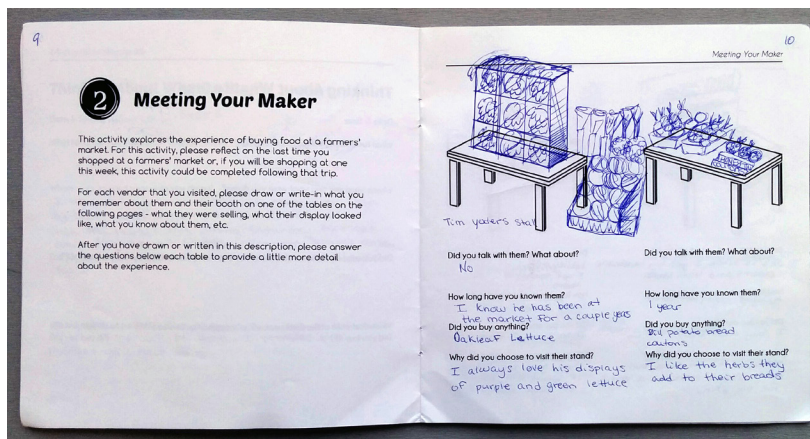 9
2 Meeting Your Maker
This activity explores the experience of buying food at a farmers'
market. For this activity, please reflect on the last time you
shopped at a farmers' market or, if you will be shopping at one
this week, this activity could be completed following that trip.
For each vendor that you visited, please draw or write-in what you
remember about them and their booth on one of the tables on the
following pages - what they were selling, what their display looked
like, what you know about them, etc.
After you have drawn or written in this description, please answer
the questions below each table to provide a little more detail
about the experience.
10
Meeting Your Maker
Tim Yoders stall
Did you talk with them? What about?
No
How long have you known them?
I know he has been at
the market for a couple years
Did you buy anything?
Oakleaf Lettuce
Why did you choose to visit their stand?
I always love his displays
of purple and green lettuce
Did you talk with them? What about?
How long have you known them?
1 year
Did you buy anything?
Dill potato bread
Why did you choose to visit their stand?
I like the herbs they
add to their breads